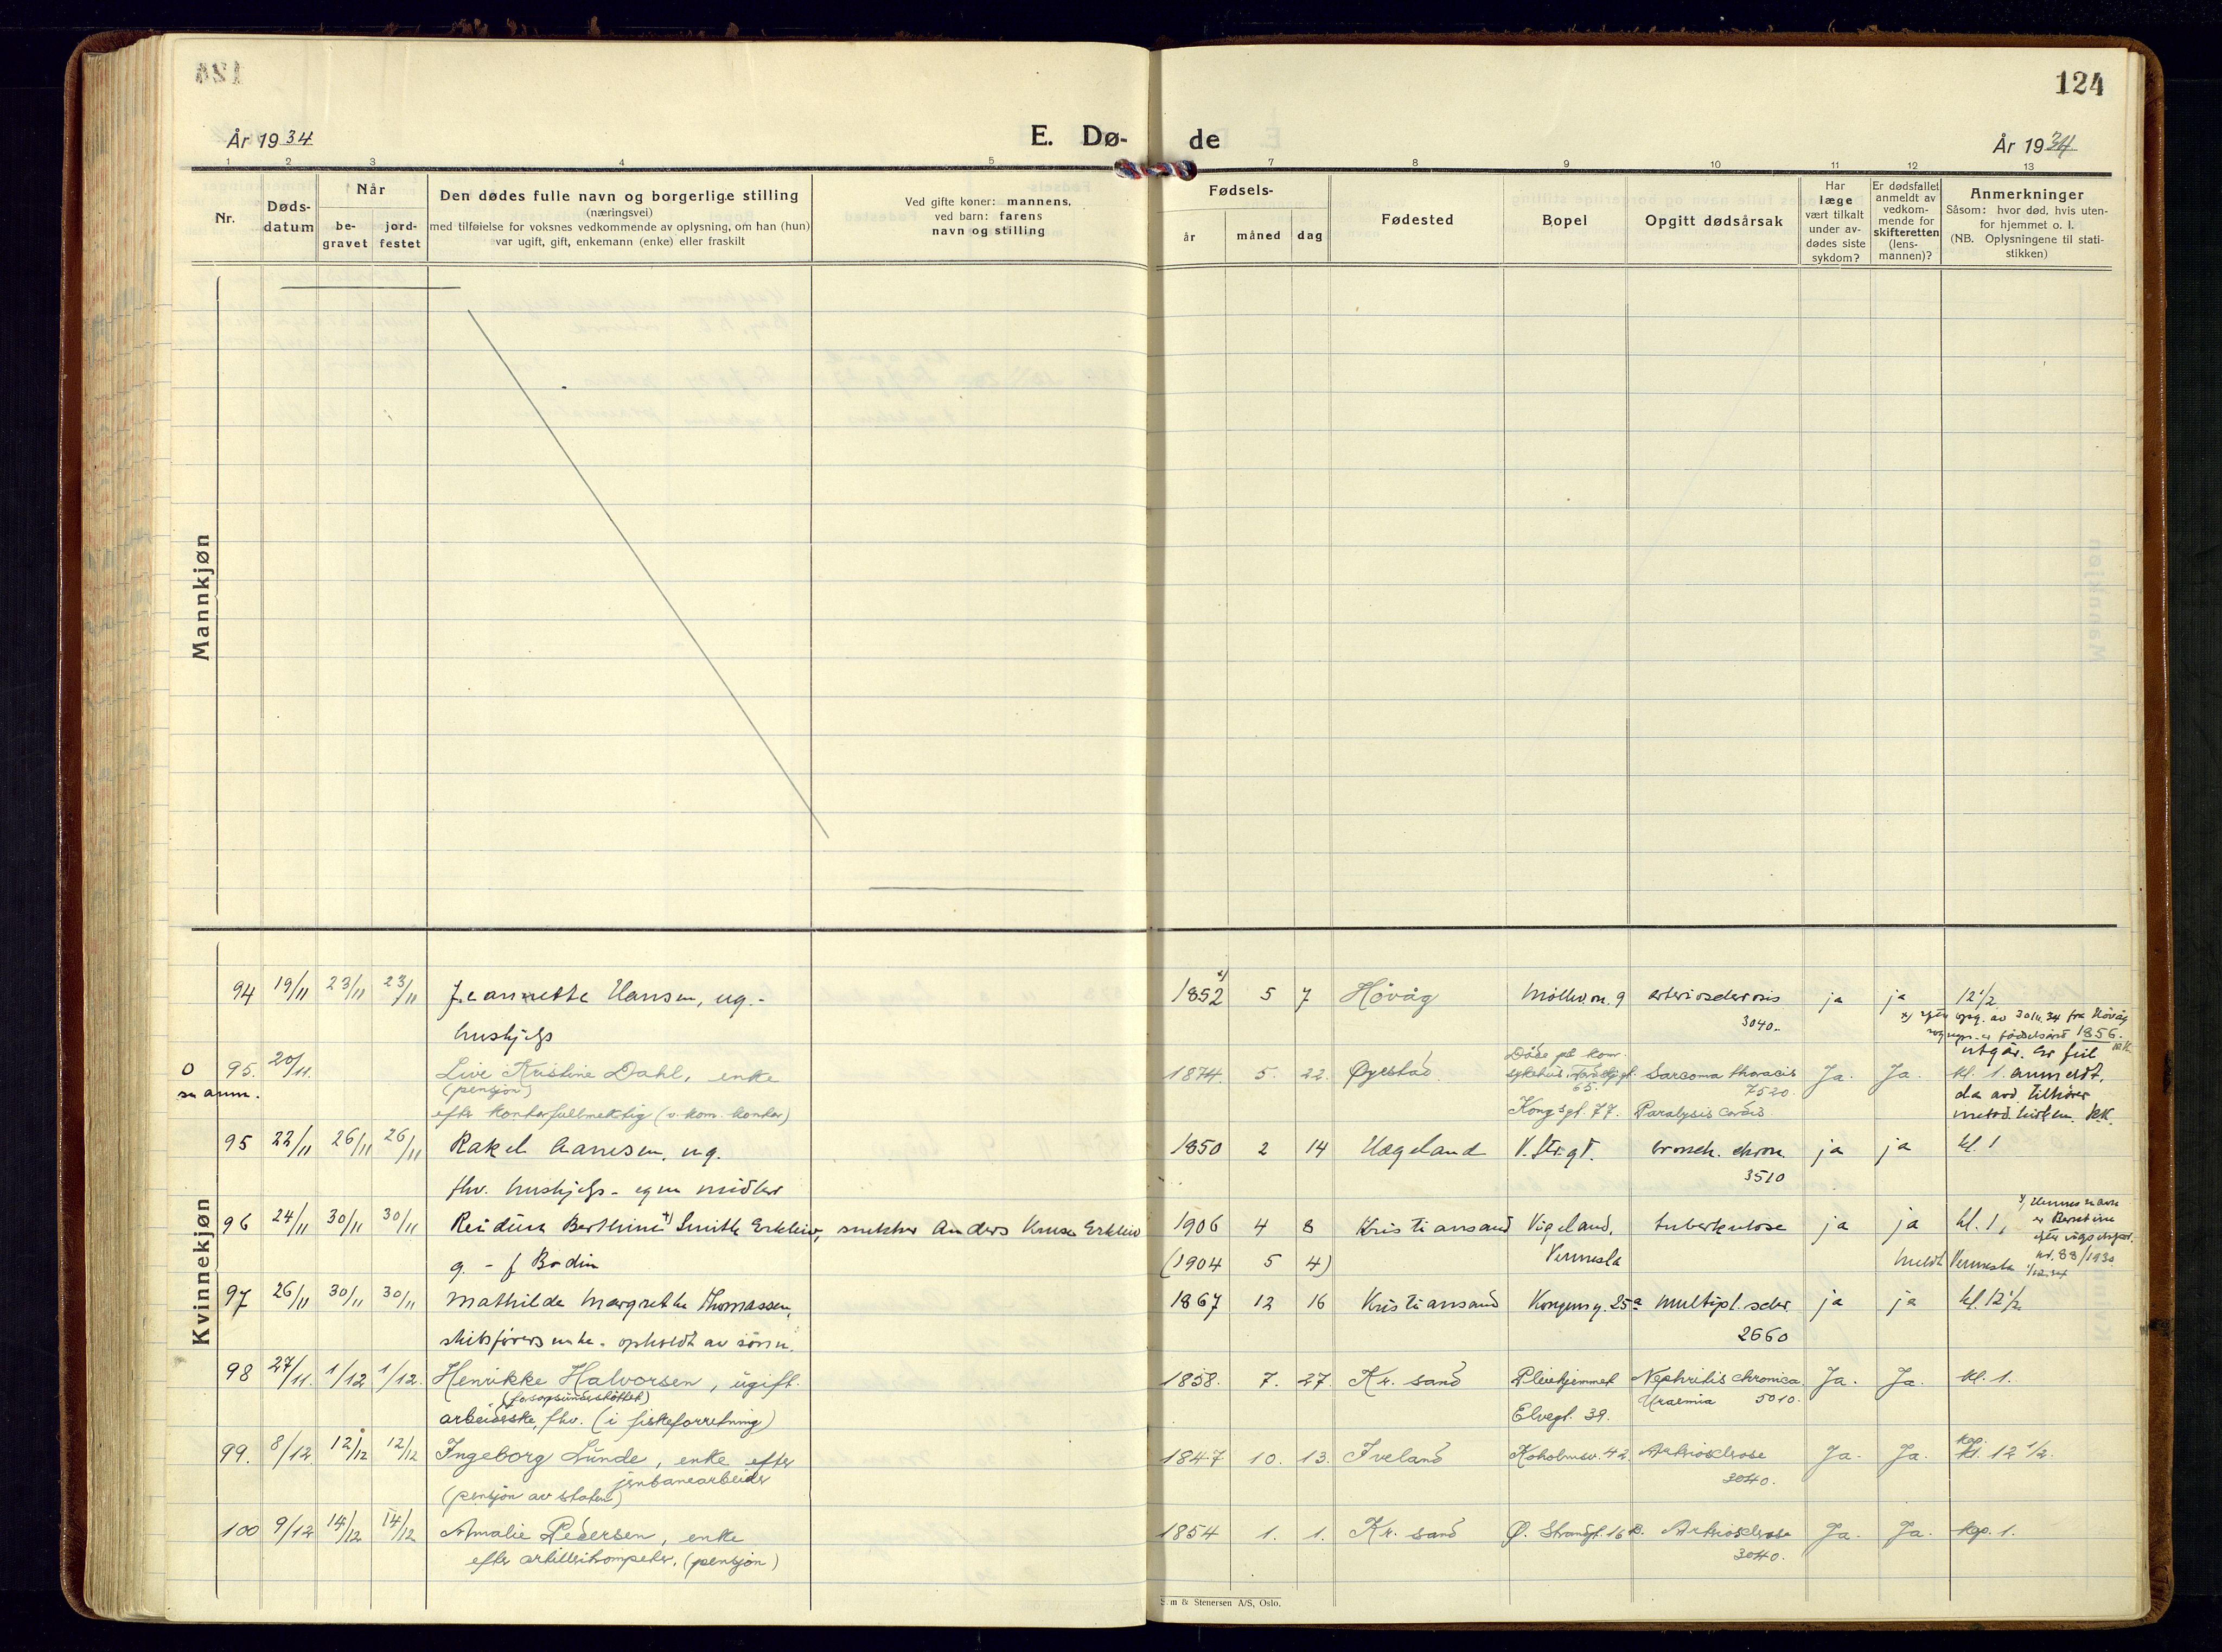 124
År 1934
E. Dø-
de
År 1934
1 2 3 4 5 7 8 9 10 11 12 13
Nr.
Døds-
datum
Når
be-
gravet
jord-
festet
Den dødes fulle navn og borgerlige stilling
(næringsvei)
med tilføielse for voksnes vedkommende av oplysning, om han (hun)
var ugift, gift, enkemann (enke) eller fraskilt
Ved gifte koner: mannens,
ved barn: farens
navn og stilling
Fødsels-
år
måned
dag
Fødested
Bopel
Opgitt dødsårsak
Har
læge
vært tilkalt
under av-
dødes siste
sykdom?
Er dødsfallet
anmeldt av
vedkom-
mende for
skifteretten
(lens-
mannen)?
Anmerkninger
Såsom: hvor død, hvis uten-
for hjemmet o. l.
(NB. Oplysningene til stati-
stikken)
Mannkjøn
Kvinnekjøn
94 19/11 23/11 23/11 Jeannette Hansen, ug.- 1852 x) 5 7 Høvåg Møllev. nr. 9 arteriosclerosis ja ja 12 1/2
hushjelp 3040.
x) efter opg. av 30/11.34 fra Høvåg
er fødselsåret 1856.
O 95. 20/11. Live Kristine Dahl, enke 1874. 5. 22. Øyestad. Døde på kom. sykehus, 65. Sarcoma thoracis Ja. Ja. kl. 1. anmeldt,
utgår. Er feil
se anm. (pensjon) 7520. da avd. tilhører
efter kontorfullmektig (v. kom. kontor) Kongsgt. 77. Paralysis cordis. metod. kirken. KK.
95 22/11 26/11 26/11 Rakel Aanesen, ug. 1850 2 14 Hægeland V. Str.gt. bronch. chron. ja ja kl. 1
fhv. hushjelp - egne midler 3510
96 24/11 30/11 30/11 Reidun Berthine x) Smith Erkleiv, snekker Anders Kruse Erkleiv 1906 4 8 Kristiansand Vigeland, tuberkulose ja ja kl. 1,
x) Hennes navn
er Berntine
efter
nr. 88/1930
g. - f Bodin (1904 5 4) Vennesla meldt Vennesla 1/12.34
97 26/11 30/11 30/11 Mathilde Margrethe Thomassen, 1867 12 16 Kristiansand Kongensg. 25a multipl. scler. ja ja kl. 12 1/2
skibsførers enke. opholdt av sønn. 2660
98 27/11. 1/12 1/12. Henrikke Halvorsen, ugift. 1858. 7. 27. Kr. sand Pleiehjemmet Nephritis chronica Ja. Ja. kl. 1.
(forsorgsunderstøttet) Uraemia 5010.
arbeiderske, fhv. (i fiskeforretning) Elvegt. 39.
99. 8/12. 12/12 12/12 Ingeborg Lunde, enke efter 1847 10. 13. Iveland Koholmsv. 42. Arteriosclerose Ja. Ja. kap. kl. 12 1/2.
jernbanearbeider 3040.
(pensjon av staten)
100 9/12 14/12 14/12 Amalie Pedersen, enke 1854 1. 1. Kr. sand Ø. Strandgt. 16 B. Arteriosclerose Ja. Ja. kap. 1.
efter artilleritrompeter, (pensjon) 3040.
& Stenersen A/S, Oslo.